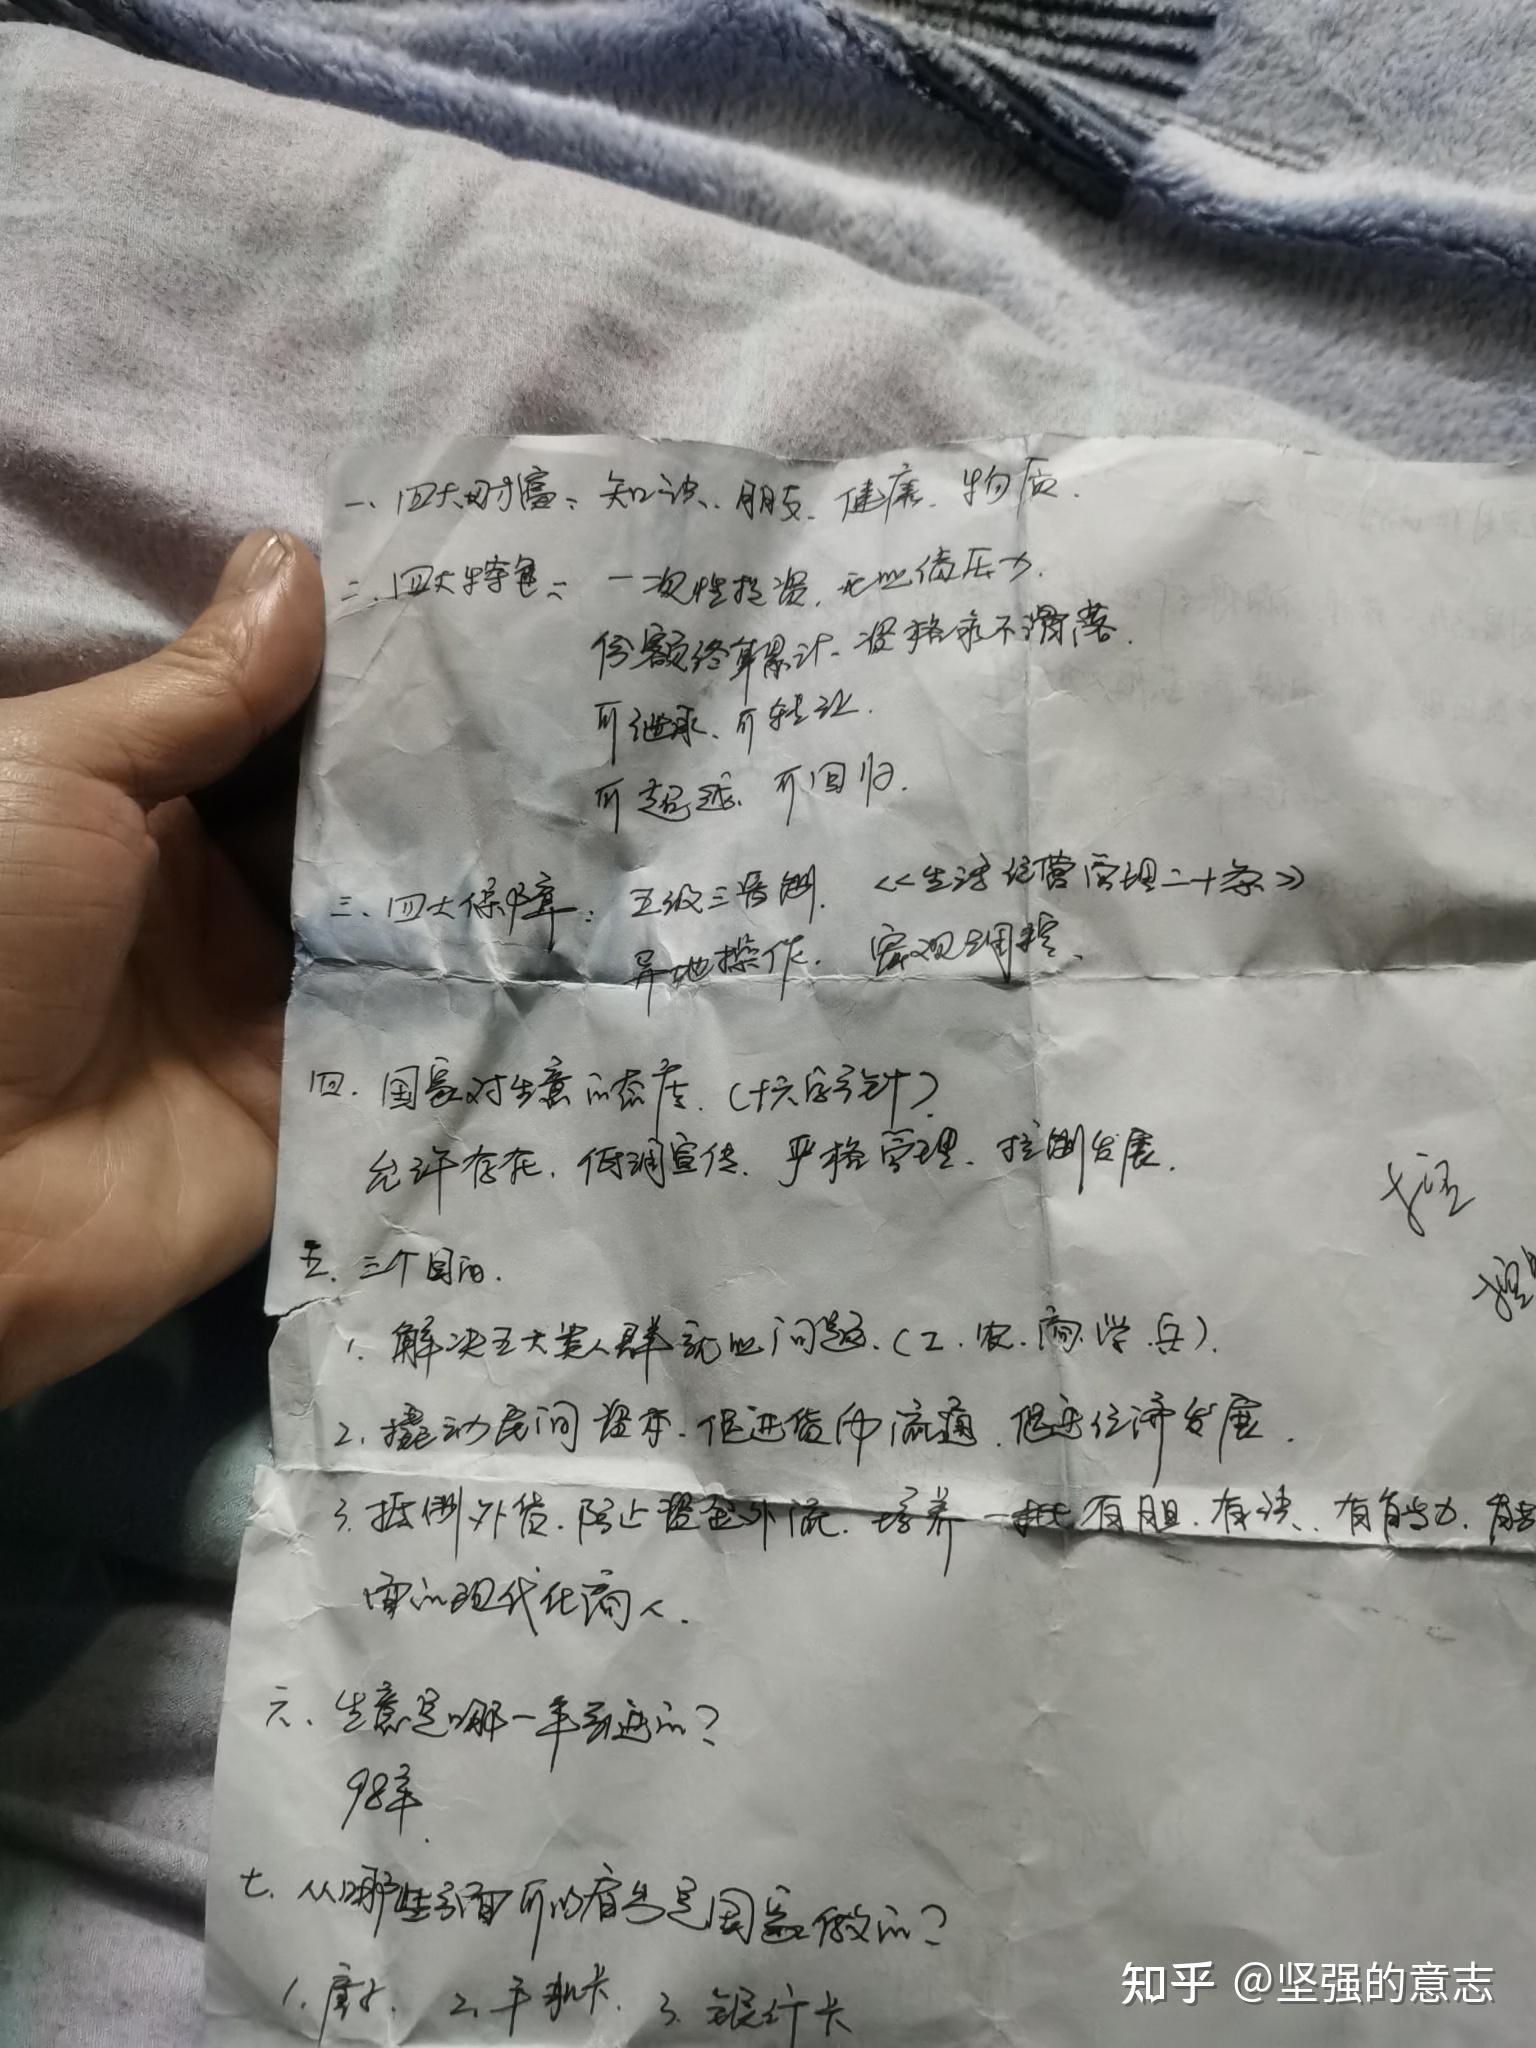 一、四大财富：知识、朋友、健康、物质.
二、四大特色： 一次性投资，无业债压力.
份额终身累计、资格永不滑落.
可继承、可转让.
可超越、可回归.
三、四大保障： 五级三晋制. 《生活经营管理二十条》
异地操作. 宏观调控.
四. 国家对生意的态度. (十六字方针)
允许存在. 低调宣传、严格管理、控制发展.
控
五. 三个目的.
1. 解决五大类人群就业问题. (工.农.商.学.兵).
2. 撬动民间资本. 促进货币流通. 促进经济发展.
3. 抵制外货. 防止资金外流. 培养一批有胆、有识、有能力.
的现代化商人.
六、生意是哪一年引进的?
98年.
七. 从哪些方面可以看出是国家做的?
1. 房子. 2. 手机卡. 3. 银行卡
知乎 @坚强的意志